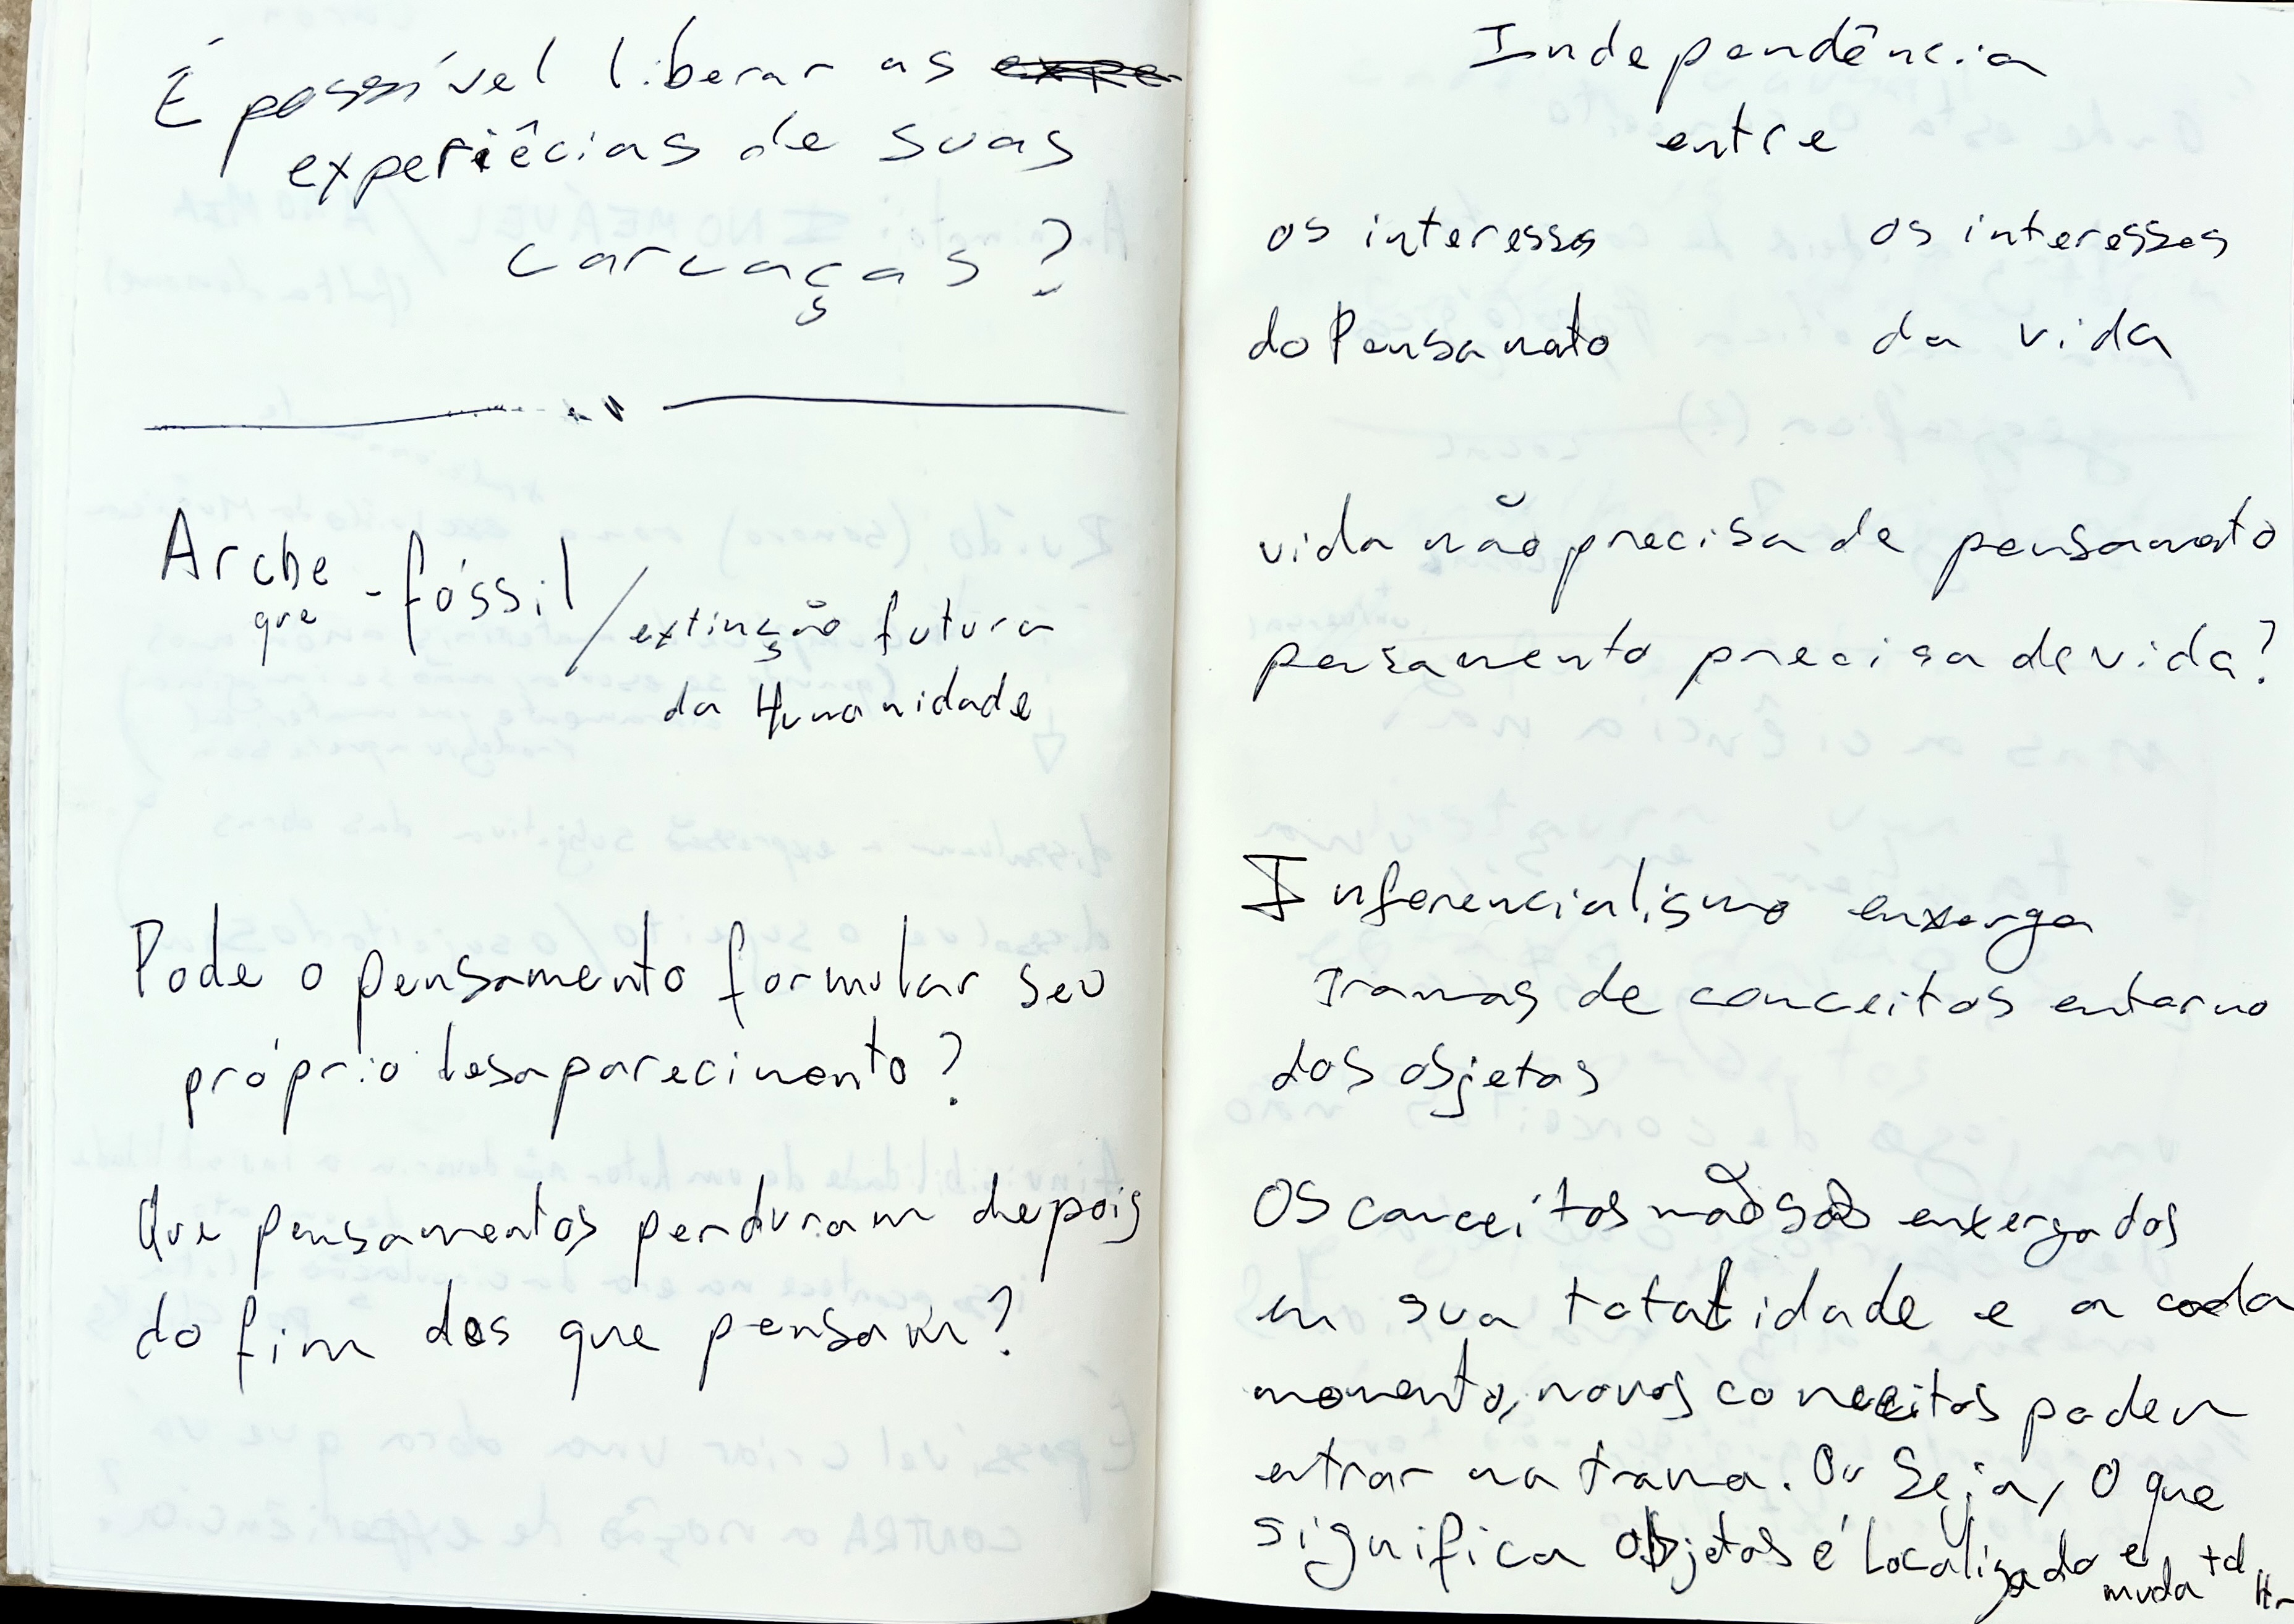 É possível liberar as
experiêcias de suas
carcaças?
Arche-fóssil / extinção futura
que
da Humanidade
Pode o pensamento formular seu
próprio desaparecimento?
Que pensamentos perduram depois
do fim dos que pensam?
Independência
entre
os interesses os interesses
do Pensamato da vida
vida não precisa de pensamato
pensamento precisa de vida?
Inferencialismo enxerga
Tramas de conceitos entorno
dos objetos
Os conceitos não são enxergados
em sua totatlidade e a cada
momento, novos conceitos podem
entrar na trama. Ou Seja, O que
significa objetos é localizado e
muda td Hr